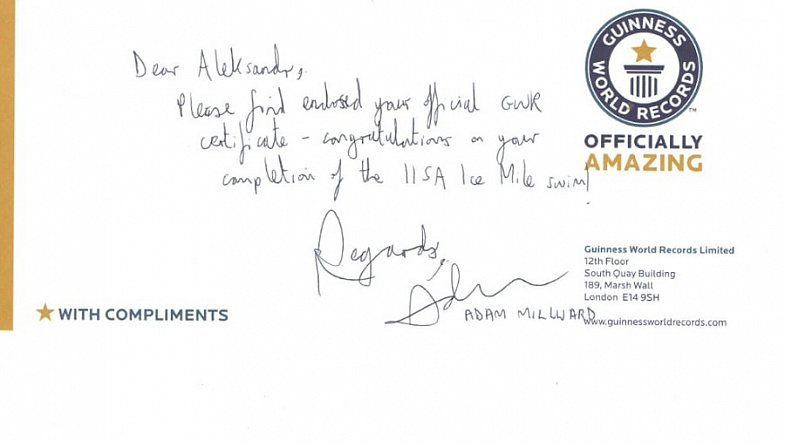 Dear Aleksandr,
Please find enclosed your official GWR
certificate - congratulations on your
completion of the IISA Ice Mile swim!
Regards,
Adam
ADAM MILLWARD
GUINNESS
WORLD RECORDS
TM
OFFICIALLY
AMAZING
Guinness World Records Limited
12th Floor
South Quay Building
189, Marsh Wall
London E14 9SH
www.guinnessworldrecords.com
WITH COMPLIMENTS